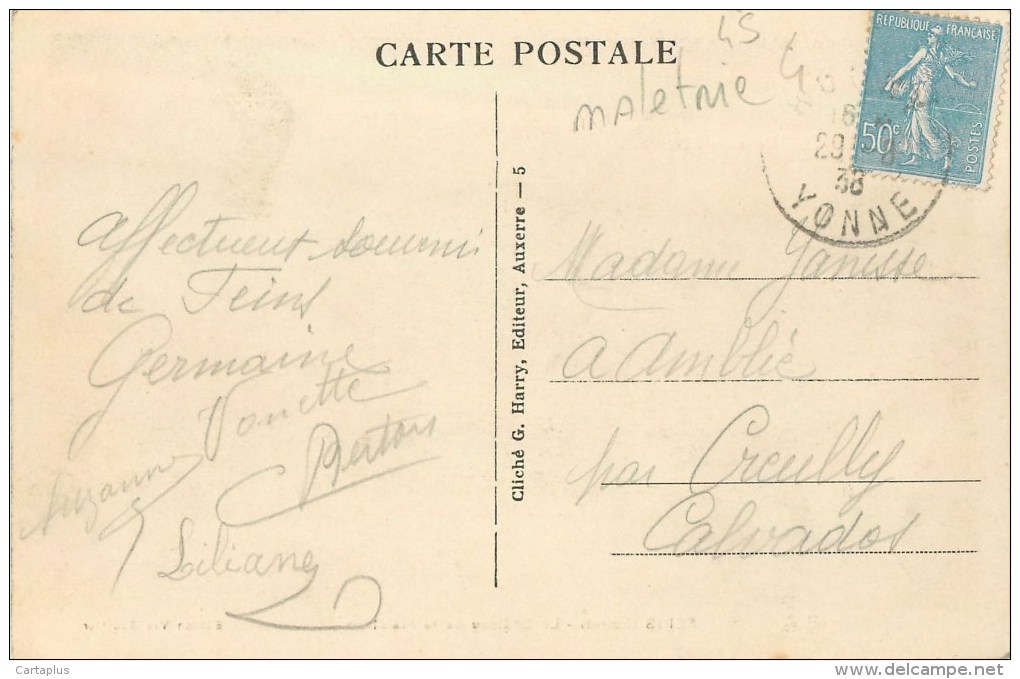 CARTE POSTALE
45
maletrie
REPUBLIQUE FRANÇAISE
50c
POSTES
16
29
38
YONNE
Affectueux souvenir
de Feins
Germaine
Vonette
Berton
Suzanne
Liliane
Cliché G. Harry, Editeur, Auxerre — 5
Madame
a Amblie
par Creully
Calvados
Cartaplus
www.delcampe.net